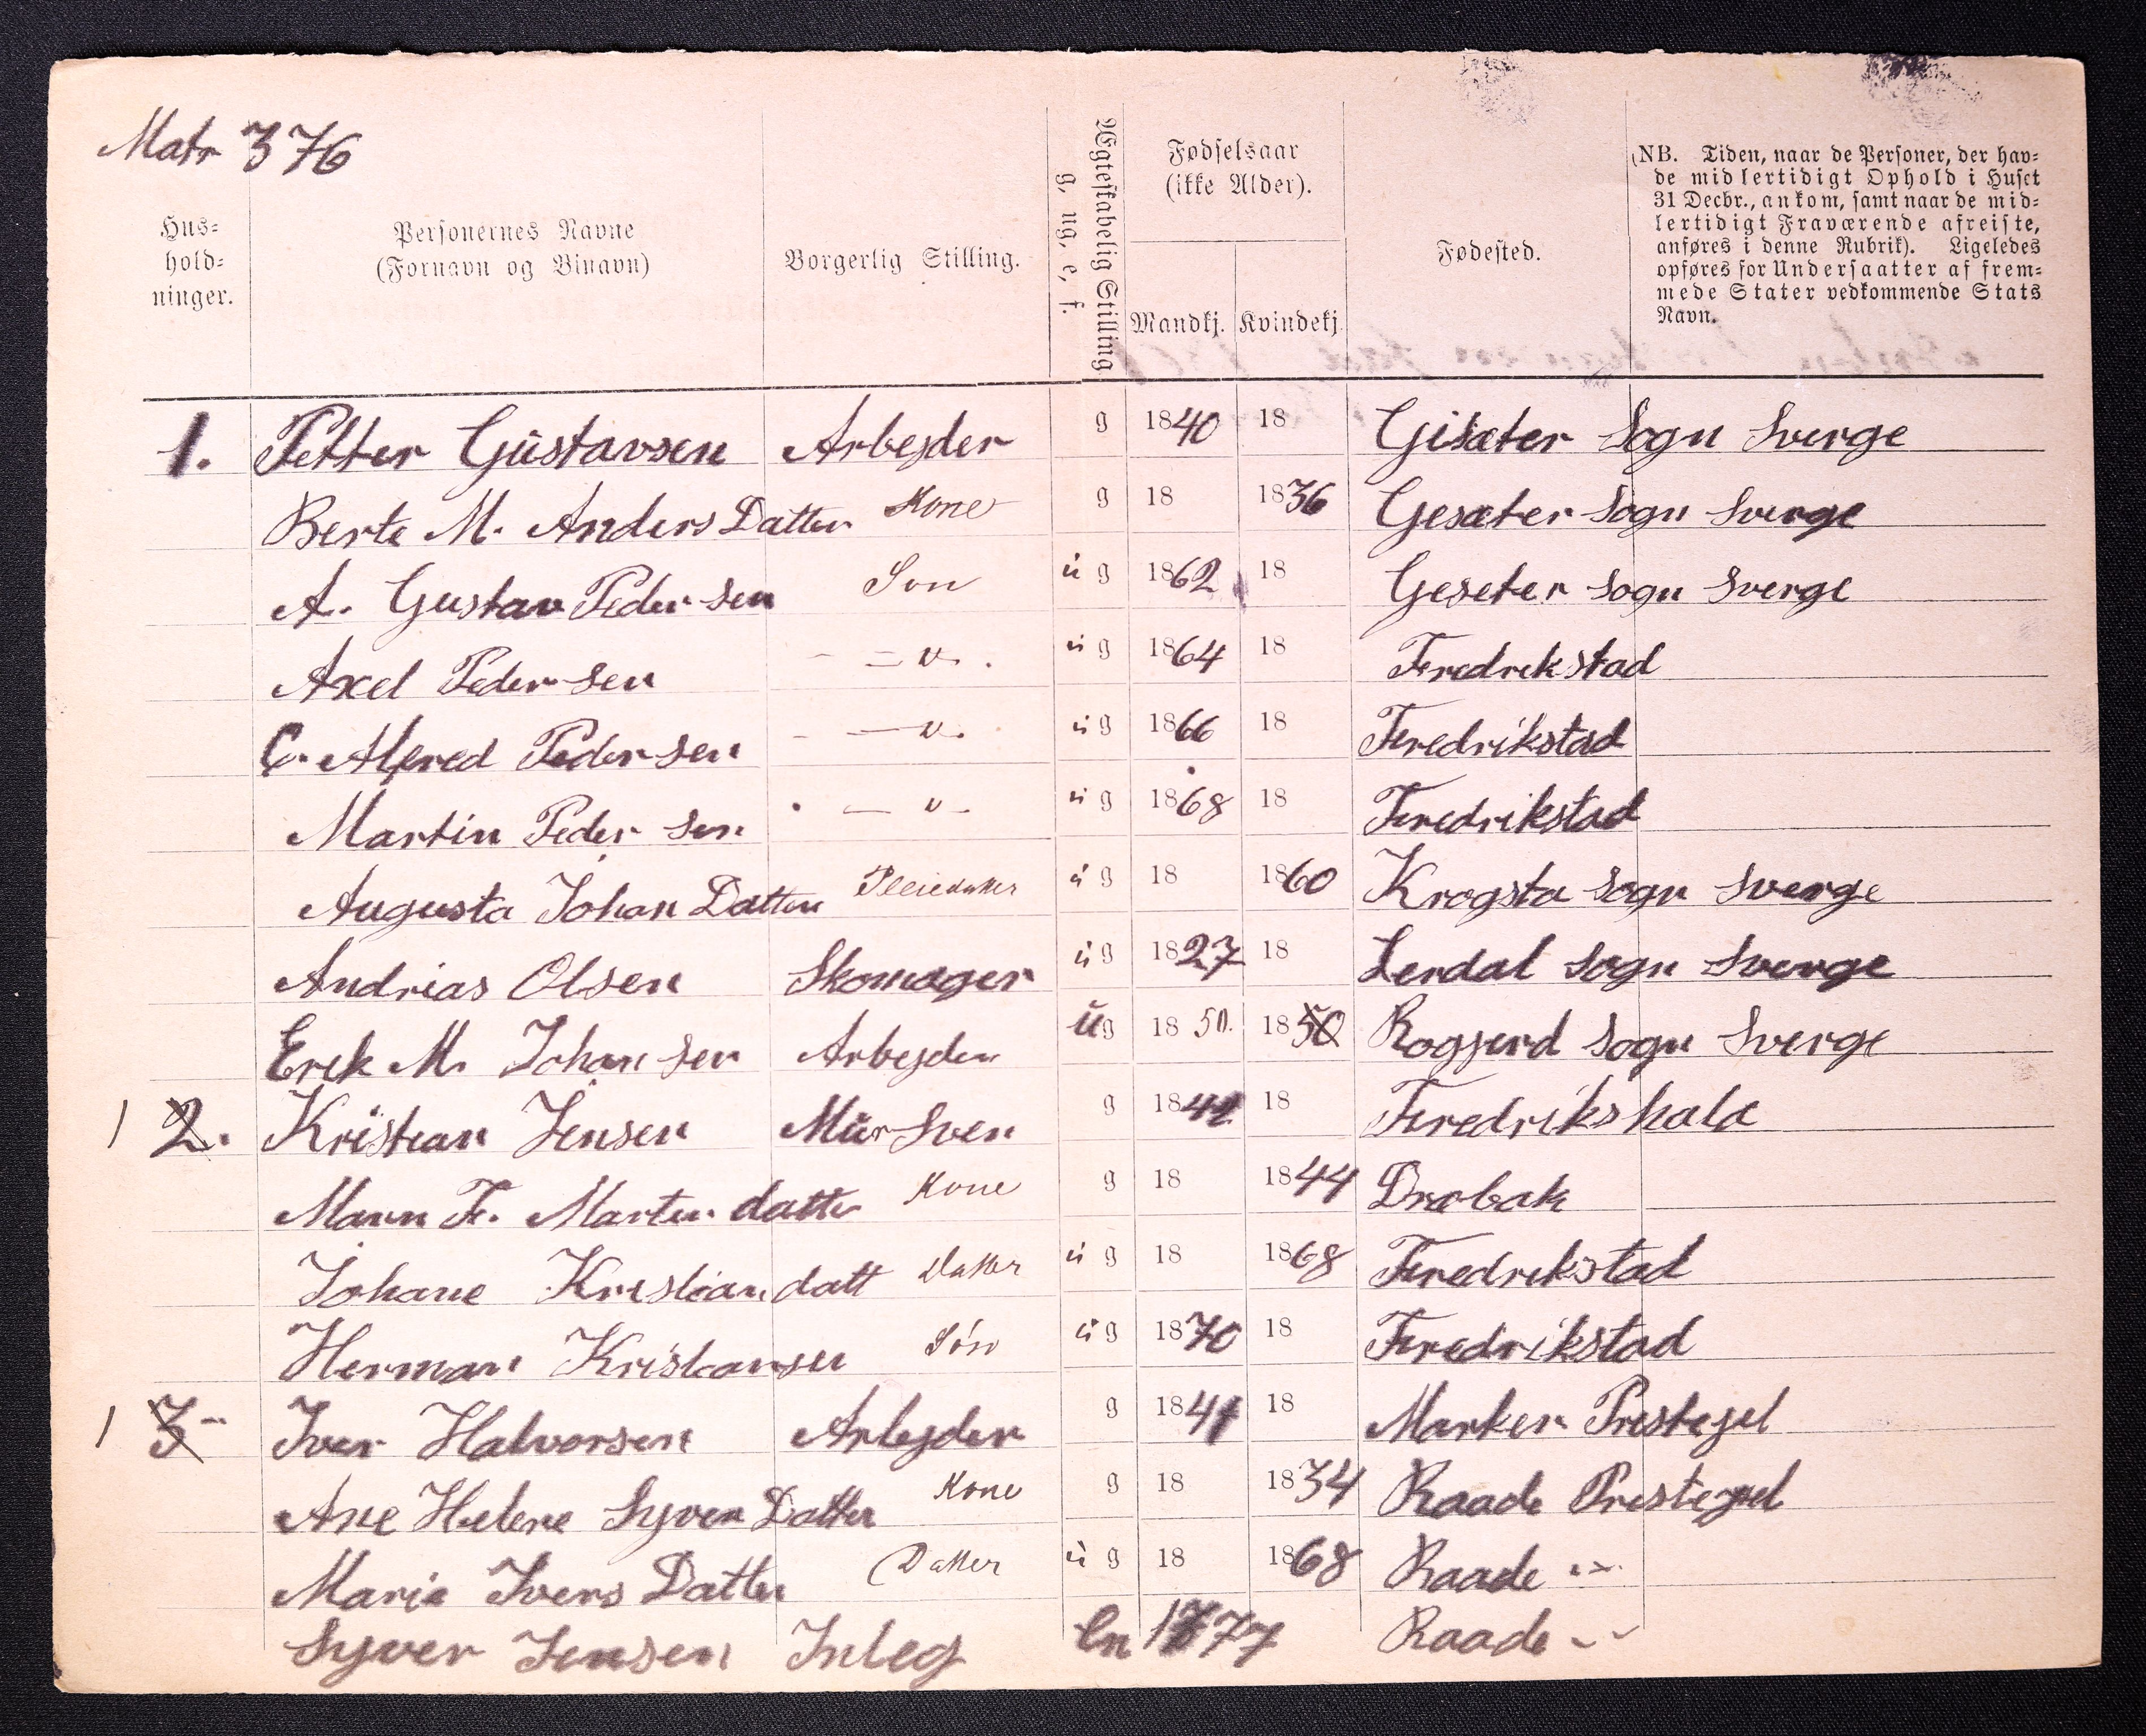 Matr 376
Hus-
hold-
ninger.
Personernes Navne
(Fornavn og Binavn)
Borgerlig Stilling.
Ægteskabelig Stilling
g, ug, e, f.
Fødselsaar
(ikke Alder).
Mandkj. Kvindekj.
Fødested.
(NB. Tiden, naar de Personer, der hav-
de midlertidigt Ophold i Huset
31 Decbr., ankom, samt naar de mid-
lertidigt Fraværende afreiste,
anføres i denne Rubrik). Ligeledes
opføres for Undersaatter af frem-
mede Stater vedkommende Stats
Navn.
1. Petter Gustavsen Arbejder g 1840 18 Gisæter Sogn Sverge
Berte M. Anders Datter Kone g 18 1836 Gesæter Sogn Sverge
A. Gustav Pedersen Son ug 1862 18 Geseter Sogn Sverge
Axel Pedersen — v. ug 1864 18 Fredrekstad
C. Alfred Pedersen — v. ug 1866 18 Fredrikstad
Martin Pedersen — v — ug 1868 18 Fredrikstad
Augusta Johan Datter Pleiedatter ug 18 1860 Krogsta Sogn Sverge
Andrias Olsen Skomager ug 1827 18 Lerdal Sogn Sverge
Erek M. Johansen Arbejder ug 18 50. 1850 Rogjerd Sogn Sverge
1 2. Kristian Jensen Mur Sven g 18 18 Fredrikshald
F. Marten datter Kone g 18 1844 Drobak
Johane Kristian datt Datter ug 18 1868 Fredrekstad
Herman Kristiansen Són ug 1870 18 Fredrikstad
1 3 Iver Halvorsen Arbejder g 1841 18 Marker Prestegel
Ane Helene Syver Datter Kone g 18 1834 Raade Prestegjel
Marie Ivers Datter Datter ug 18 1868 Raade -"-
Syver Jensen Inleg En 1777 Raade -"-